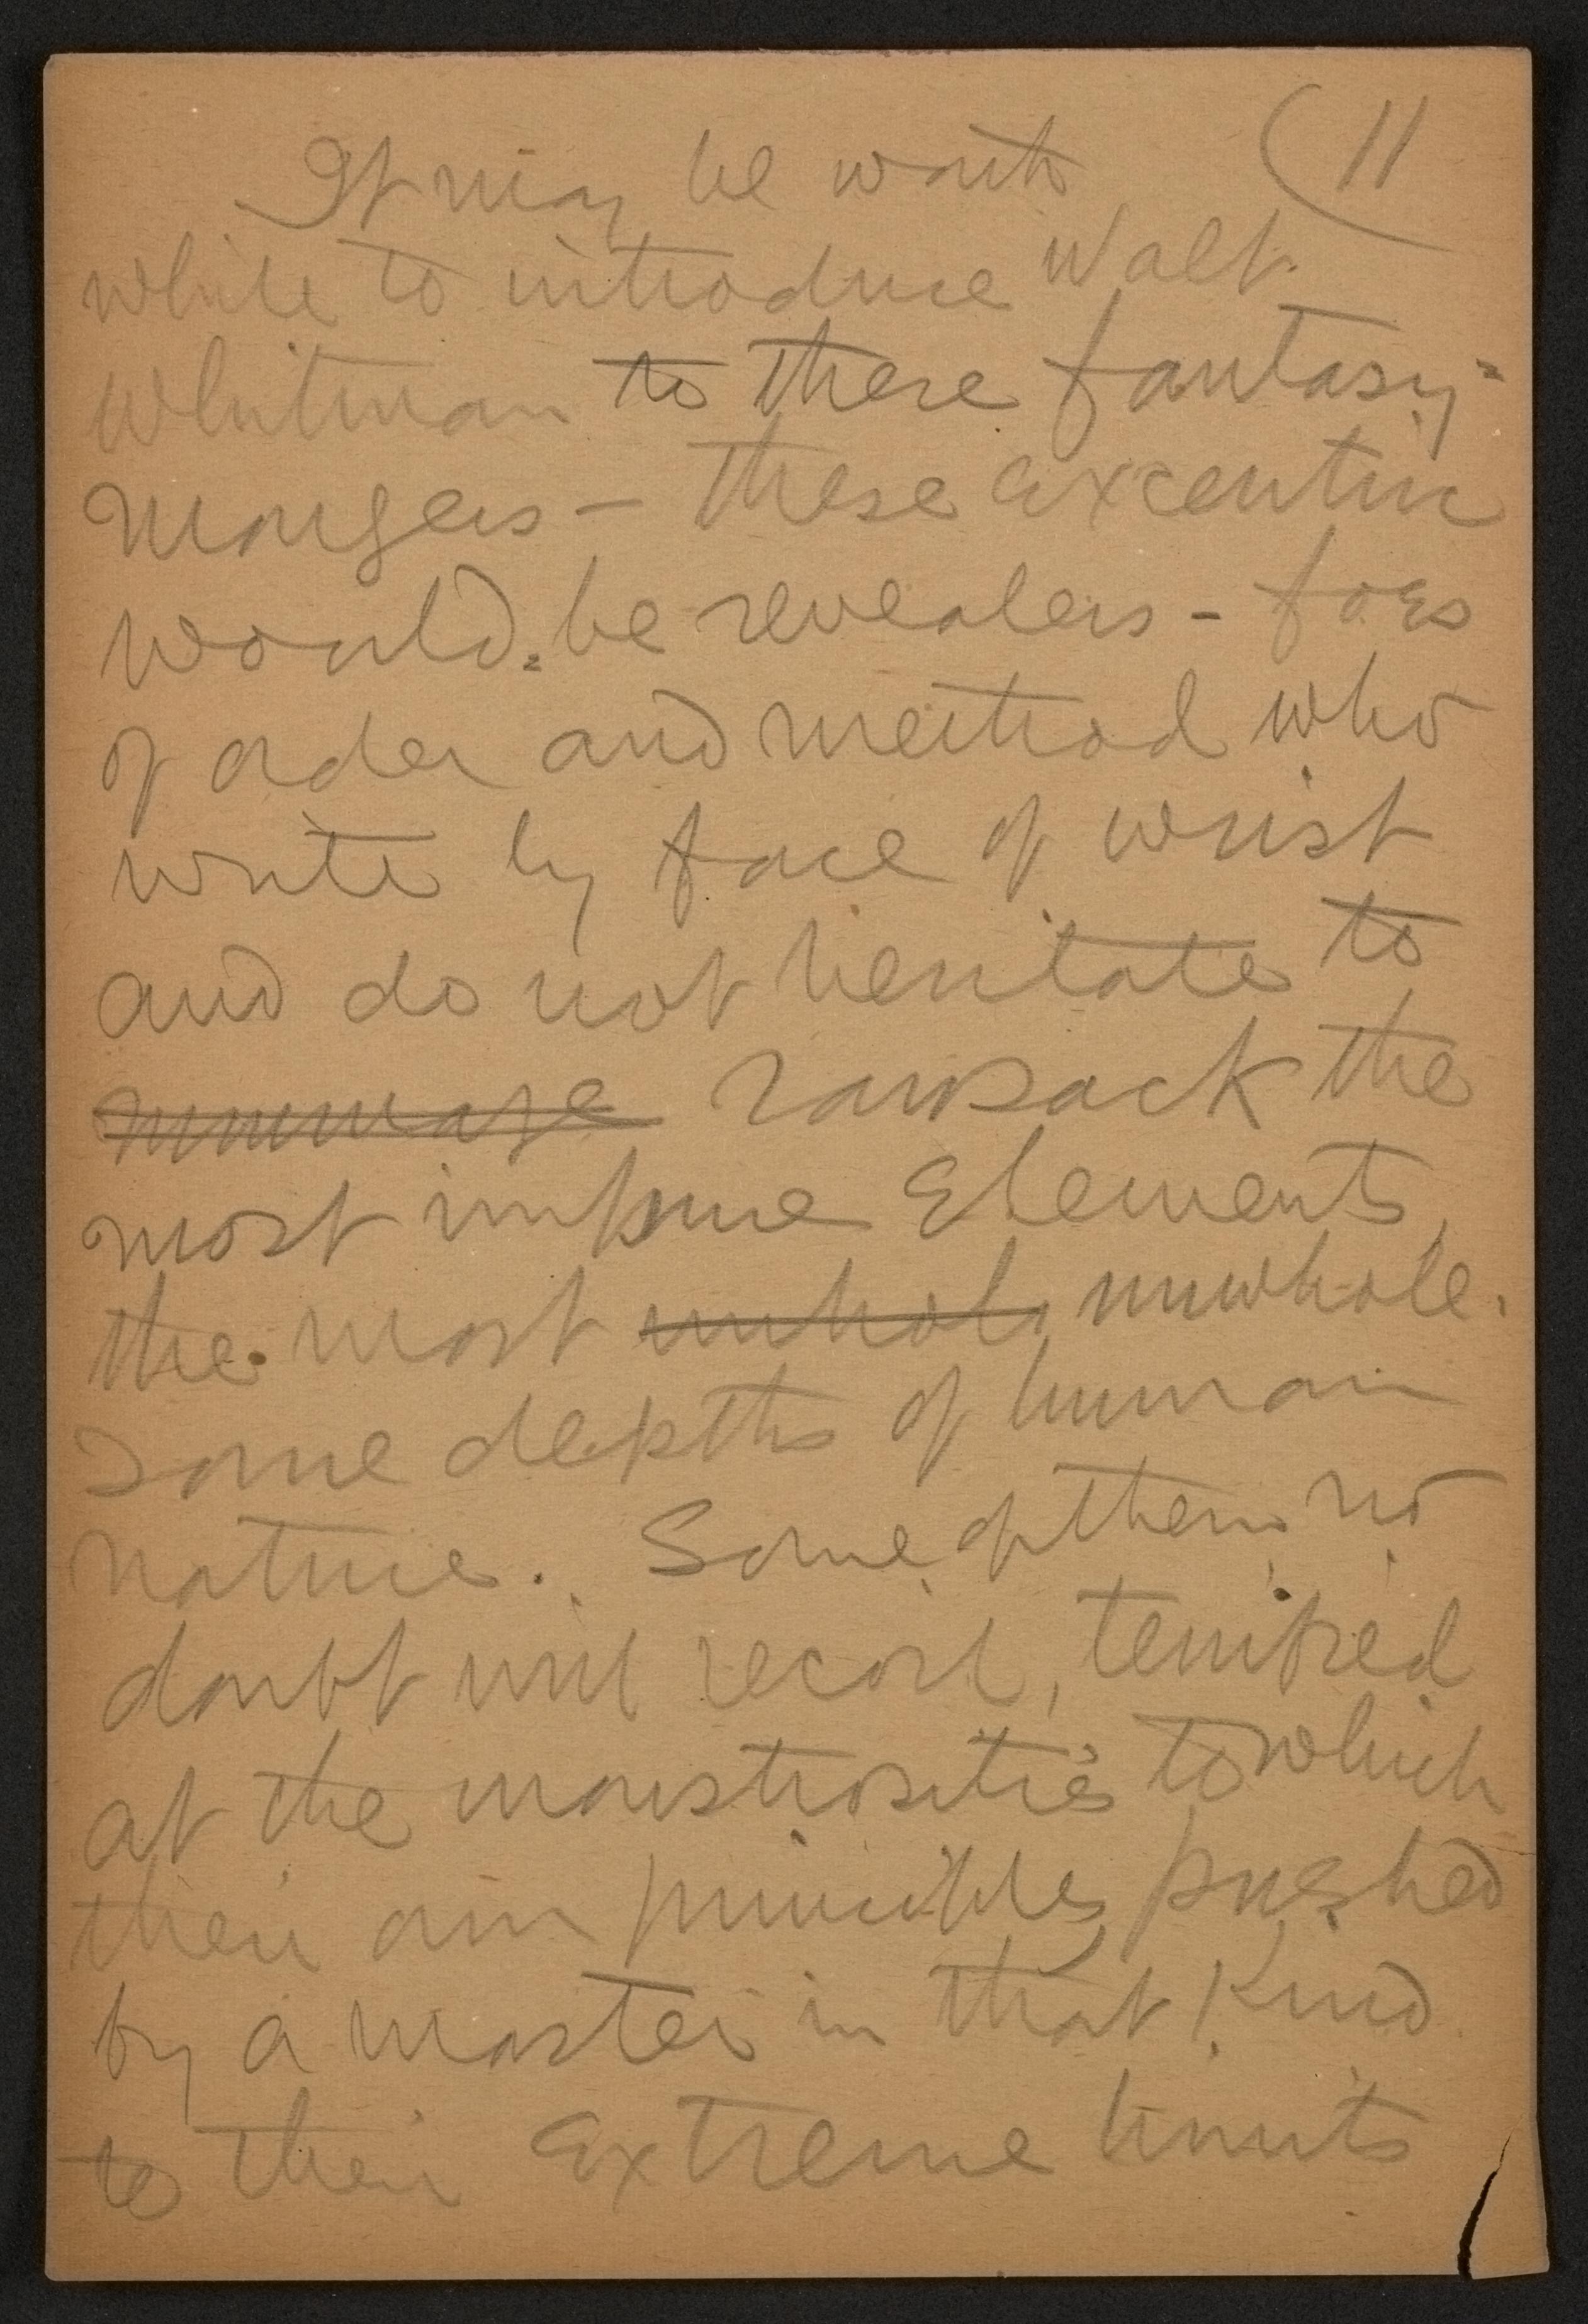 (11
It may be worth
while to introduce Walt
Whitman to these fantasy-
mongers — these excentric
would-be revealers - foes
of order and method who
write by force of wrist
and do not hesitate to
rummage ransack the
most impure elements,
the most unhol unwhole-
some depths of human
nature. Some of them no
doubt will recoil, terrified
at the monstrosities to which
their own principles, pushed
by a master in that kind
to their extreme limits